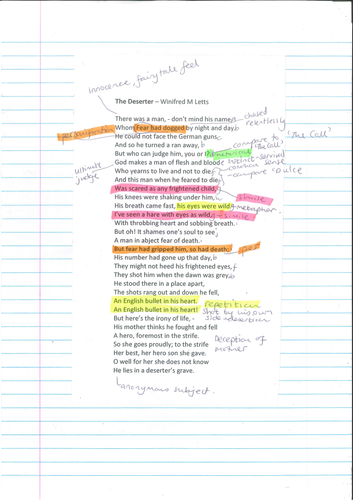 innocence, fairytale feel
The Deserter – Winifred M Letts
There was a man, - don't mind his name,
chased relentlessly
Whom Fear had dogged by night and day,
personification
He could not face the German guns
compare to 'The Call'
And so he turned and ran away,
But who can judge him, you or I?
God makes a man of flesh and blood
instinct-survival
Who yearns to live and not to die
common sense
ultimate judge
And this man when he feared to die
compare Dulce
Was scared as any frightened child,
simile
His knees were shaking under him,
His breath came fast, his eyes were wild
metaphor
I've seen a hare with eyes as wild,
simile
With throbbing heart and sobbing breath.
But oh! It shames one's soul to see
A man in abject fear of death.
But fear had gripped him, so had death;
His number had gone up that day,
They might not heed his frightened eyes,
They shot him when the dawn was grey.
He stood there in a place apart,
The shots rang out and down he fell,
An English bullet in his heart.
An English bullet in his heart!
repetition
shot by his own side
desertion
But here's the irony of life,
His mother thinks he fought and fell
A hero, foremost in the strife.
Deception of mother
So she goes proudly; to the strife
Her best, her hero son she gave.
O well for her she does not know
He lies in a deserter's grave.
anonymous subject.